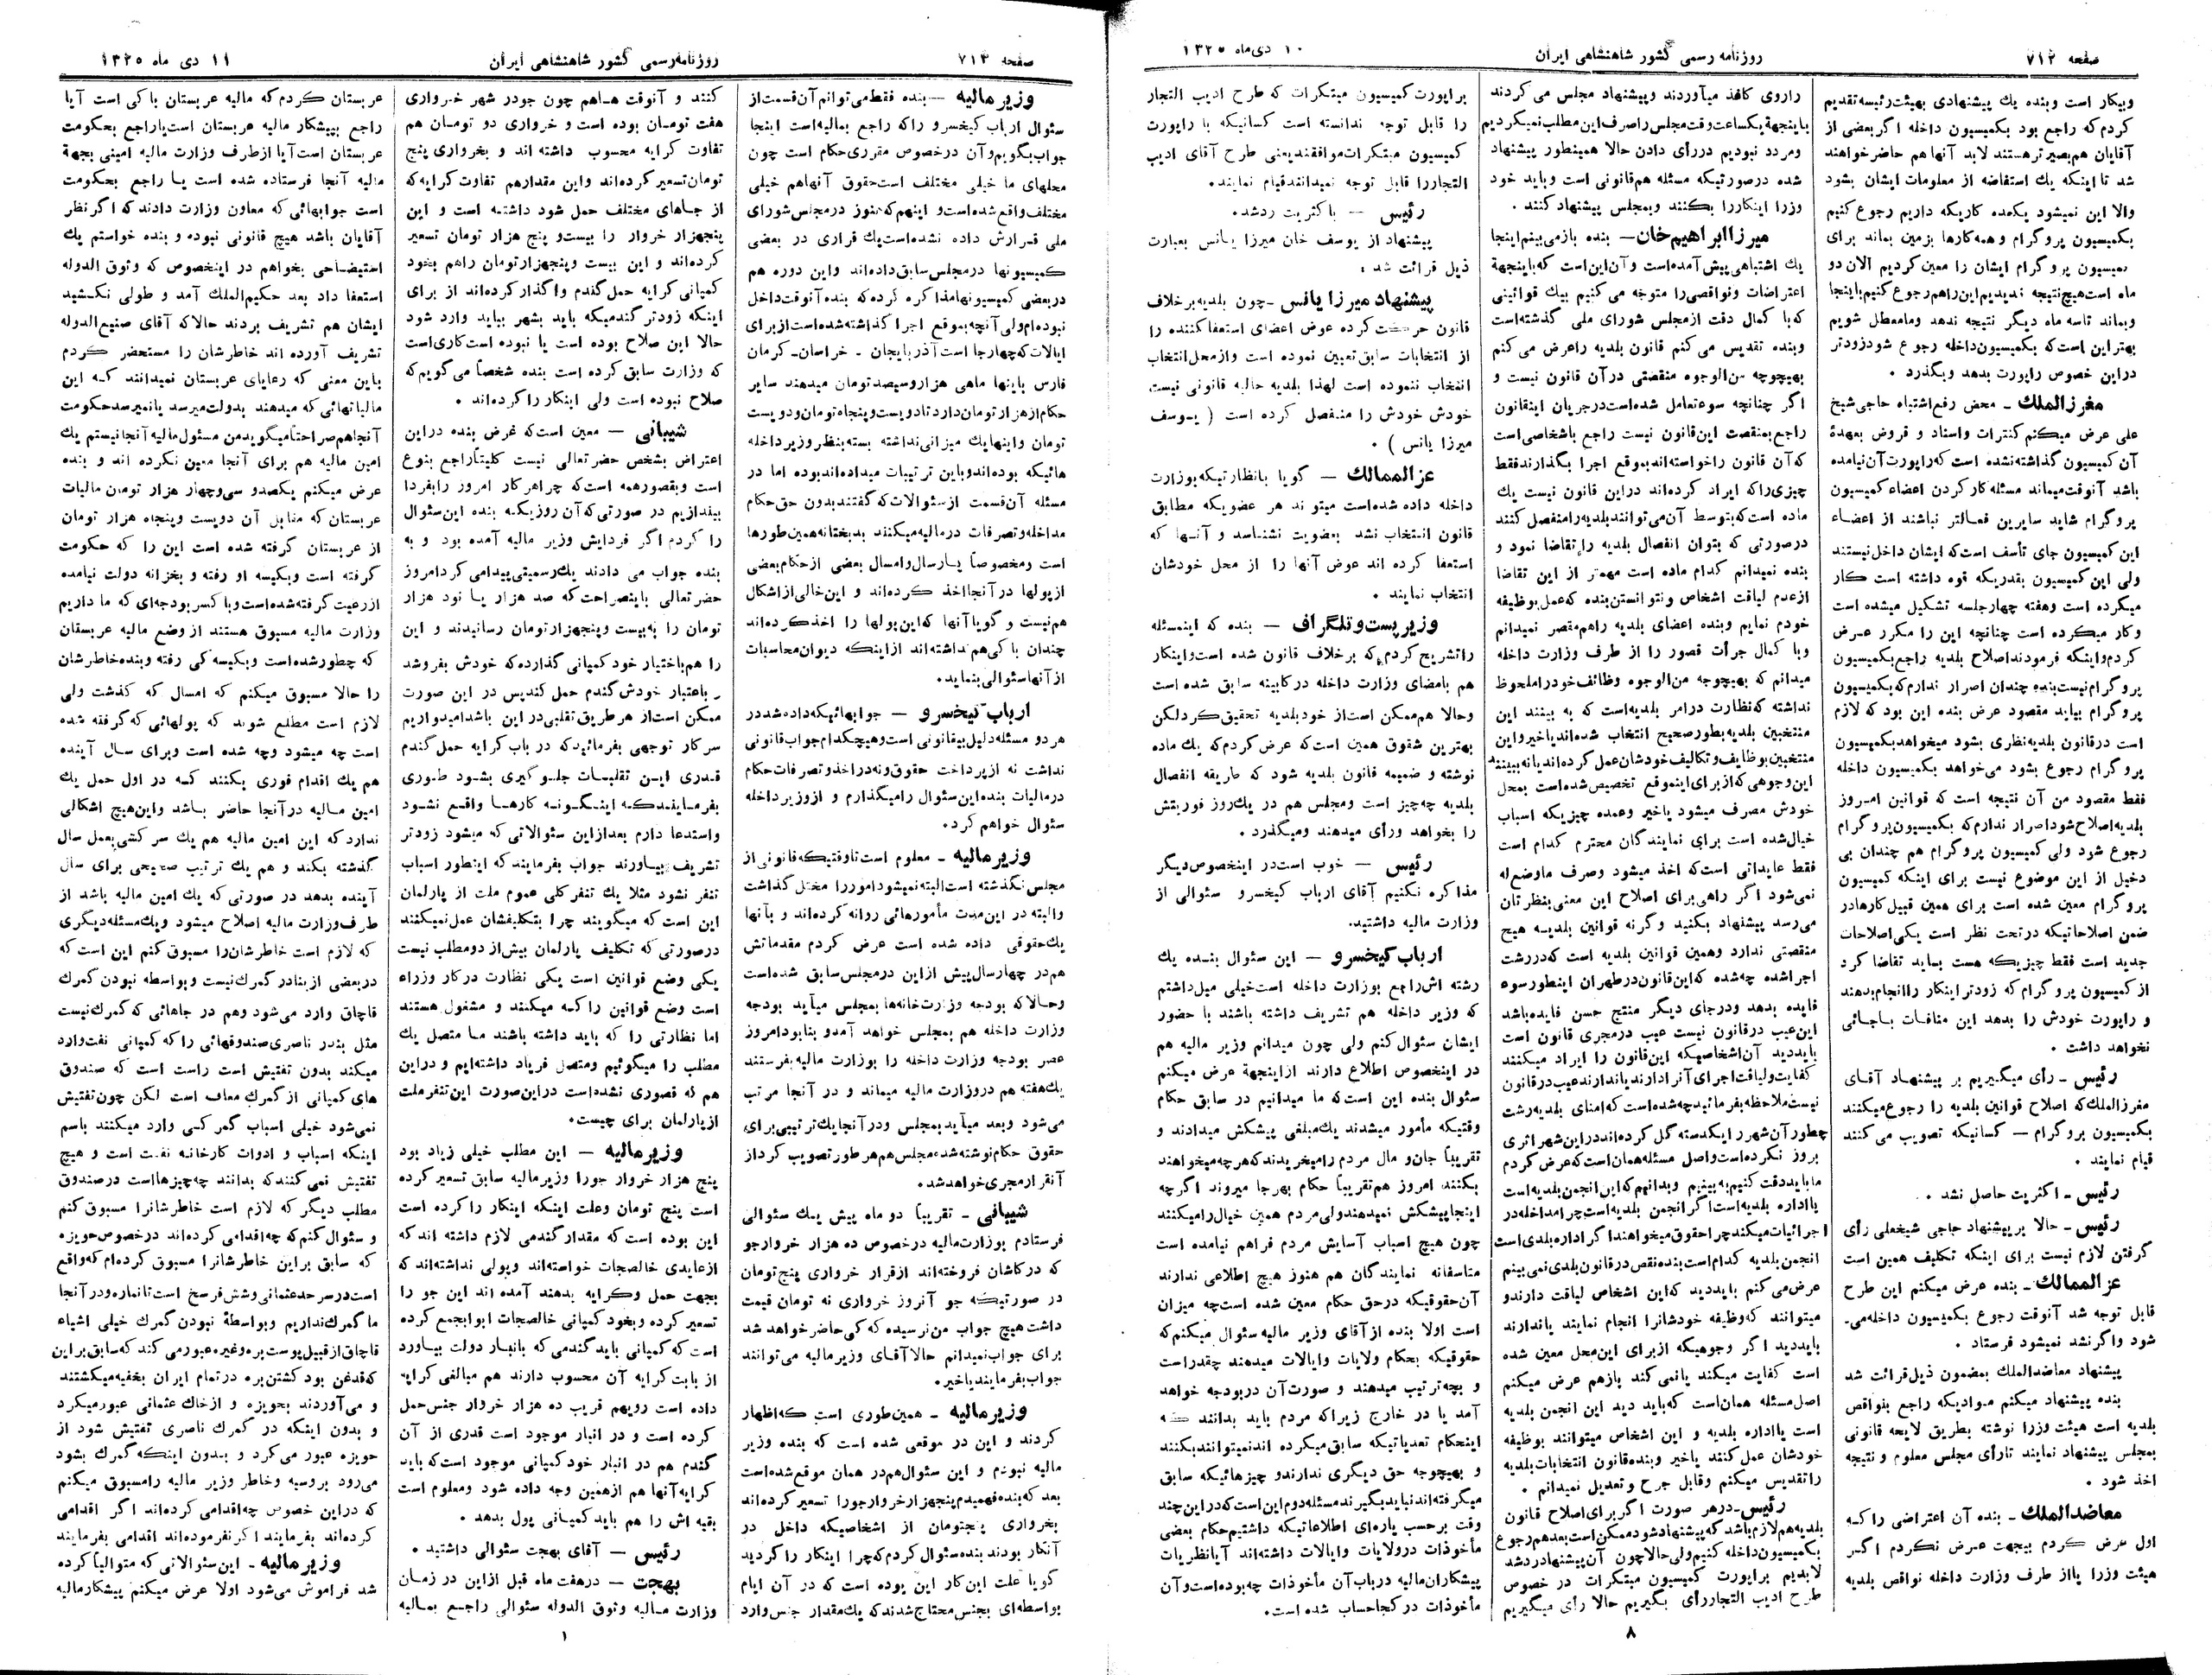 صفحه ۷۱۲
روزنامه رسمی کشور شاهنشاهی ایران
۱۰ دی‌ماه ۱۳۲۵
وبیکار است وبنده یك پیشنهادی بهیئت رئیسه تقدیم
کردم که راجع بود بکمیسیون داخله اگر بعضی از
آقایان هم بصیر تر هستند لابد آنها هم حاضر خواهند
شد تا اینکه یك استفاضه از معلومات ایشان بشود
والا این نمیشود یکعده کاریکه داریم رجوع کنیم
بکمیسیون پروگرام وهمه کارها بزمین بماند برای
کمیسیون پروگرام ایشان را معین کردیم الان دو
ماه است هیچ نتیجه ندیدیم این راهم رجوع کنیم باینجا
وبماند تاسه ماه دیگر نتیجه ندهد ومامعطل شویم
بهتر این است که بکمیسیون داخله رجوع شود زودتر
دراین خصوص راپورت بدهد وبگذرد .
مغرزالملك ـ محض رفع اشتباه حاجی شیخ
علی عرض میکنم کنترات واستاد و قروض بعهدۀ
آن کمیسیون گذاشته نشده است که راپورت آن نیامده
باشد آنوقت میماند مسئله کار کردن اعضاء کمیسیون
پروگرام شاید سایرین فعالتر نباشند از اعضاء
این کمیسیون جای تأسف است که ایشان داخل نیستند
ولی این کمیسیون بقدریکه قوه داشته است کار
میکرده است وهفته چهار جلسه تشکیل میشده است
وکار میکرده است چنانچه این را مکرر عرض
کردم واینکه فرمودند اصلاح بلدیه راجع بکمیسیون
پروگرام نیست بنده چندان اصرار ندارم که بکمیسیون
پروگرام بیاید مقصود عرض بنده این بود که لازم
است درقانون بلدیه نظری بشود میخواهد بکمیسیون
پروگرام رجوع بشود می‌خواهد بکمیسیون داخله
فقط مقصود من آن نتیجه است که قوانین امروز
بلدیه اصلاح شود اصرار ندارم که بکمیسیون پروگرام
رجوع شود ولی کمیسیون پروگرام هم چندان بی
دخیل از این موضوع نیست برای اینکه کمیسیون
پروگرام معین شده است برای همین قبیل کارها در
ضمن اصلاحاتیکه در تحت نظر است یکی اصلاحات
جدید است فقط چیزیکه هست بباید تقاضا کرد
از کمیسیون پروگرام که زودتر اینکار را انجام بدهند
و راپورت خودش را بدهد این منافات باجائی
نخواهد داشت .
رئیس ـ رأی میگیریم بر پیشنهاد آقای
مغرزالملك که اصلاح قوانین بلدیه را رجوع میکنند
بکمیسیون پروگرام — کسانیکه تصویب می کنند
قیام نمایند .
رئیس ـ اکثریت حاصل نشد .
رئیس ـ حالا بر پیشنهاد حاجی شیخعلی رأی
گرفتن لازم نیست برای اینکه تکلیف همین است
عزالممالك ـ بنده عرض میکنم این طرح
قابل توجه شد آنوقت رجوع بکمیسیون داخله می‌ـ
شود واگر نشد نمیشود فرستاد .
پیشنهاد معاضدالملك بمضمون ذیل قرائت شد
بنده پیشنهاد میکنم موادیکه راجع بنواقص
بلدیه است هیئت وزرا نوشته بطریق لایحه قانونی
بمجلس پیشنهاد نمایند تارأی مجلس معلوم و نتیجه
اخذ شود .
معاضدالملك ـ بنده آن اعتراضی را که
اول عرض کردم بیجهت عرض نکردم اگر
هیئت وزرا یااز طرف وزارت داخله نواقص بلدیه
راروی کاغذ میآوردند وپیشنهاد مجلس می کردند
باینجهة یکساعت وقت مجلس راصرف این مطلب نمیکردیم
ومردد نبودیم دررأی دادن حالا همینطور پیشنهاد
شده درصورتیکه مسئله هم قانونی است وباید خود
وزرا اینکاررا بکنند وبمجلس پیشنهاد کنند .
میرزا ابراهیم خان— بنده بازمی‌بینم اینجا
یك اشتباهی پیش آمده است وآن این است که باینجهة
اعتراضات ونواقصی را متوجه می کنیم بیك قوانینی
که با کمال دقت از مجلس شورای ملی گذشته است
وبنده تقدیس می کنم قانون بلدیه راعرض می کنم
بهیچوجه من الوجوه منقصتی درآن قانون نیست و
اگر چنانچه سوء تعامل شده است در جریان اینقانون
راجع بمنقصت این قانون نیست راجع باشخاصی است
که آن قانون راخواسته اند بموقع اجرا بگذارند فقط
چیزی راکه ایراد کرده‌اند دراین قانون نیست یك
ماده است که بتوسط آن می‌توانند بلدیه رامنفصل کنند
درصورتی که بتوان انفصال بلدیه را تقاضا نمود و
بنده نمیدانم کدام ماده است مهمتر از این تقاضا
ازعدم لیاقت اشخاص ونتوانستن بنده که عمل بوظیفه
خودم نمایم وبنده اعضای بلدیه راهم مقصر نمیدانم
وبا کمال جرأت قصور را از طرف وزارت داخله
میدانم که بهیچوجه من الوجوه وظائف خودرا ملحوظ
نداشته که نظارت درامر بلدیه است که به بینند این
منتخبین بلدیه بطور صحیح انتخاب شده‌اند یاخیر واین
منتخبین بوظایف وتکالیف خودشان عمل کرده‌اند یانه ببینند
این وجوهی که از برای اینموقع تخصیص شده است بمحل
خودش مصرف میشود یاخیر وعمده چیزیکه اسباب
خیال شده است برای نمایندگان محترم کدام است
فقط عایداتی است که اخذ میشود وصرف ماوضع له
نمی‌شود اگر راهی برای اصلاح این معنی بنظرتان
می‌رسد پیشنهاد بکنید وگرنه قوانین بلدیه هیچ
منقصتی ندارد وهمین قوانین بلدیه است که دررشت
اجرا شده چه شده که این قانون درطهران اینطور سوء
فایده بدهد ودرجای دیگر منتج حسن فایده باشد
این عیب درقانون نیست عیب درمجری قانون است
بایددید آن اشخاصیکه این قانون را ایراد میکنند
کفایت ولیاقت اجرای آنرا دارند یا ندارند عیب درقانون
نیست ملاحظه بفرمائید چه شده است که امنای بلدیه رشت
چطور آن شهر را یکدسته گل کرده‌اند دراین شهر اثری
بروز نکرده است واصل مسئله همان است که عرض کردم
ما باید دقت کنیم به بینیم وبدانیم که این انجمن بلدیه است
یا اداره بلدیه است اگر انجمن بلدیه است چرا مداخله در
اجرائیات میکند چرا حقوق میخواهند اگر اداره بلدی است
انجمن بلدیه کدام است بنده نقص درقانون بلدی نمی بینم
عرض می کنم بایددید که این اشخاص لیاقت دارند و
میتوانند که وظیفه خودشانرا انجام نمایند یاندارند
بایددید اگر وجوهیکه ازبرای این محل معین شده
است کفایت میکند یانمی کند بازهم عرض میکنم
اصل مسئله همان است که باید دید این انجمن بلدیه
است یااداره بلدیه و این اشخاص میتوانند بوظیفه
خودشان عمل کنند یاخیر وبنده قانون انتخابات بلدیه
راتقدیس میکنم وقابل جرح و تعدیل نمیدانم .
رئیس ـ درهر صورت اگر برای اصلاح قانون
بلدیه هم لازم باشد که پیشنهاد شود ممکن است بعد هم رجوع
بکمیسیون داخله کنیم ولی حالا چون آن پیشنهاد رد شد
لابدیم براپورت کمیسیون مبتکرات در خصوص
طرح ادیب التجار رأی بگیریم حالا رأی میگیریم
براپورت کمیسیون مبتکرات که طرح ادیب التجار
را قابل توجه ندانسته است کسانیکه با راپورت
کمیسیون مبتکرات موافقند یعنی طرح آقای ادیب
التجاررا قابل توجه نمیدانند قیام نمایند.
رئیس — با کثریت ردشد.
پیشنهاد از یوسف خان میرزا یانس بعبارت
ذیل قرائت شد .
پیشنهاد میرزا یانس ـ چون بلدیه برخلاف
قانون حرکت کرده عوض اعضای استعفا کننده را
از انتخابات سابق تعیین نموده است وازمحل انتخاب
انتخاب ننموده است لهذا بلدیه حالیه قانونی نیست
خودش خودش را منفصل کرده است ( یوسف
میرزا یانس ) .
عزالممالك — گویا بانظارتیکه بوزارت
داخله داده شده است میتواند هر عضویکه مطابق
قانون انتخاب نشد بعضویت نشناسد و آنها که
استعفا کرده اند عوض آنها را از محل خودشان
انتخاب نمایند .
وزیر پست و تلگراف — بنده که اینمسئله
راتشریح کردم که برخلاف قانون شده است واینکار
هم بامضای وزارت داخله درکابینه سابق شده است
وحالا هم ممکن است از خود بلدیه تحقیق کرد لکن
بهترین شقوق همین است که عرض کردم که یك ماده
نوشته و ضمیمه قانون بلدیه شود که طریقه انفصال
بلدیه چه چیز است ومجلس هم در یك روز فوریتش
را بخواهد ورأی میدهند ومیگذرد .
رئیس — خوب است در اینخصوص دیگر
مذاکره نکنیم آقای ارباب کیخسرو سئوالی از
وزارت مالیه داشتید.
ارباب کیخسرو — این سئوال بنده یك
رشته اش راجع بوزارت داخله است خیلی میل داشتم
که وزیر داخله هم تشریف داشته باشند با حضور
ایشان سئوال کنم ولی چون میدانم وزیر مالیه هم
در اینخصوص اطلاع دارند ازاینجهة عرض میکنم
سئوال بنده این است که ما میدانیم در سابق حکام
وقتیکه مأمور میشدند یك مبلغی پیشکش میدادند و
تقریباً جان و مال مردم را میخریدند که هرچه میخواهند
بکنند امروز هم تقریباً حکام بهرجا میروند اگرچه
اینجا پیشکش نمیدهند ولی مردم همین خیال را میکنند
چون هیچ اسباب آسایش مردم فراهم نیامده است
متاسفانه نمایندگان هم هنوز هیچ اطلاعی ندارند
آن حقوقیکه درحق حکام معین شده است چه میزان
است اولا بنده از آقای وزیر مالیه سئوال میکنم که
حقوقیکه بحکام ولایات وایالات میدهند چقدر است
و بچه ترتیب میدهند و صورت آن دربودجه خواهد
آمد یا در خارج زیرا که مردم باید بدانند که
اینحکام تعدیاتیکه سابق میکرده اند نمیتوانند بکنند
و بهیچوجه حق دیگری ندارند و چیزهائیکه سابق
میگرفته اند نباید بگیرند مسئله دوم این است که دراین چند
وقت برحسب پاره‌ای اطلاعاتیکه داشتیم حکام بعضی
مأخوذات درولایات وایالات داشته‌اند آیا نظریات
پیشکاران مالیه درباب آن مأخوذات چه بوده است و آن
مأخوذات در کجا حساب شده است.
۸
صفحه ۷۱۳
روزنامه رسمی کشور شاهنشاهی ایران
۱۱ دی ماه ۱۳۲۵
وزیر مالیه — بنده فقط می‌توانم آن قسمت از
سئوال ارباب کیخسرو راکه راجع بمالیه است اینجا
جواب بگویم وآن درخصوص مقرری حکام است چون
محلهای ما خیلی مختلف است حقوق آنها هم خیلی
مختلف واقع شده است و اینهم که هنوز در مجلس شورای
ملی قرارش داده نشده است یك قراری در بعضی
کمیسیونها درمجلس سابق داده‌اند واین دوره هم
در بعضی کمیسیونها مذاکره کرده که بنده آنوقت داخل
نبوده‌ام ولی آنچه بموقع اجرا گذاشته شده است از برای
ایالات که چهارجا است آذربایجان ـ خراسان ـ کرمان
فارس باینها ماهی هزاروسیصد تومان میدهند سایر
حکام از هزار تومان دارد تا دویست وپنجاه تومان و دویست
تومان واینها یك میزانی نداشته بسته بنظر وزیر داخله
هائیکه بوده‌اند و باین ترتیبات میداده‌اند بوده اما در
مسئله آن قسمت از سئوالات که گفتند بدون حق حکام
مداخله و تصرفات در مالیه میکنند بدبختانه همین طورها
است ومخصوصاً پارسال وامسال بعضی از حکام بعضی
از پولها در آنجا اخذ کرده‌اند و این خالی از اشکال
هم نیست و گویا آنها که این پولها را اخذ کرده‌اند
چندان باکی هم نداشته‌اند از اینکه دیوان محاسبات
از آنها سئوالی بنماید.
ارباب کیخسرو — جوابهائیکه داده شد در
هر دو مسئله دلیل بیقانونی است وهیچکدام جواب قانونی
نداشت نه از پرداخت حقوق و نه در اخذ و تصرفات حکام
در مالیات بنده این سئوال را میگذارم و از وزیر داخله
سئوال خواهم کرد.
وزیر مالیه ـ معلوم است تا وقتیکه قانونی از
مجلس نگذشته است البته نمیشود امور را مختل گذاشت
والبته در این مدت مأمورهائی روانه کرده‌اند و بآنها
یك حقوقی داده شده است عرض کردم مقدماتش
هم در چهار سال پیش از این در مجلس سابق شده است
وحالا که بودجه وزارت خانه‌ها بمجلس میآید بودجه
وزارت داخله هم بمجلس خواهد آمد و بنا بود امروز
عصر بودجه وزارت داخله را بوزارت مالیه بفرستند
یك هفته هم در وزارت مالیه میماند و در آنجا مرتب
می‌شود وبعد میآید بمجلس ودر آنجا یك ترتیبی برای
حقوق حکام نوشته شده مجلس هم هر طور تصویب کرد از
آنقرار مجری خواهد شد.
شیبانی ـ تقریباً دو ماه پیش یك سئوالی
فرستادم بوزارت مالیه درخصوص ده هزار خروار جو
که در کاشان فروخته‌اند از قرار خرواری پنج تومان
در صورتیکه جو آنروز خرواری نه تومان قیمت
داشت هیچ جواب من نرسیده که کی حاضر خواهد شد
برای جواب نمیدانم حالا آقای وزیر مالیه می‌توانند
جواب بفرمایند یاخیر.
وزیر مالیه ـ همین طوری است که اظهار
کردند و این در موقعی شده است که بنده وزیر
مالیه نبودم و این سئوال هم در همان موقع شده است
بعد که بنده فهمیدم پنجهزار خروار جو را تسعیر کرده‌اند
بخرواری پنجتومان از اشخاصیکه داخل در
آنکار بودند بنده سئوال کردم که چرا اینکار را کردید
گویا علت این کار این بوده است که در آن ایام
بواسطه‌ای بجنس محتاج شدند که یك مقدار جنس وارد
کنند و آنوقت هم‌هم چون جو در شهر خرواری
هفت تومان بوده است و خرواری دو تومان هم
تفاوت کرایه محسوب داشته اند و بخرواری پنج
تومان تسعیر کرده‌اند واین مقدارهم تفاوت کرایه که
از جاهای مختلف حمل شود داشته است و این
پنجهزار خروار را بیست و پنج هزار تومان تسعیر
کرده‌اند و این بیست وپنجهزار تومان راهم بخود
کمپانی کرایه حمل گندم واگذار کرده‌اند از برای
اینکه زودتر گندمیکه باید بشهر بیاید وارد شود
حالا این صلاح بوده است یا نبوده است کاری است
که وزارت سابق کرده است بنده شخصاً می‌گویم که
صلاح نبوده است ولی اینکار را کرده‌اند .
شیبانی — معین است که غرض بنده دراین
اعتراض بشخص حضرتعالی نیست کلیتاً راجع بنوع
است وبقصور همه است که چرا هر کار امروز را بفردا
بیندازیم در صورتی که آن روزیکه بنده این سئوال
را کردم اگر فردایش وزیر مالیه آمده بود و به
بنده جواب می دادند یك رسمیتی پیدا می کرد امروز
حضرتعالی باینصراحت که صد هزار یا نود هزار
تومان را به بیست وپنجهزار تومان رسانیدند و این
را هم باختیار خود کمپانی گذارده که خودش بفروشد
باعتبار خودش گندم حمل کند پس در این صورت
ممکن است از هر طریق تقلبی در این باشد امیدواریم
سرکار توجهی بفرمائید که در باب کرایه حمل گندم
قدری این تقلبات جلوگیری بشود طوری
بفرمایند که اینگونه کارها واقع نشود
واستدعا دارم بعد از این سئوالاتی که میشود زودتر
تشریف بیاورند جواب بفرمایند که اینطور اسباب
تنفر نشود مثلا یك تنفر کلی عموم ملت از پارلمان
این است که میگویند چرا بتکلیفشان عمل نمیکنند
درصورتی که تکلیف پارلمان بیش از دو مطلب نیست
یکی وضع قوانین است یکی نظارت در کار وزراء
است وضع قوانین را که میکنند و مشغول هستند
اما نظارتی را که باید داشته باشند ما متصل یك
مطلب را میگوئیم ومتصل فریاد داشته‌ایم و در این
هم که قصوری نشده است دراین صورت این تنفر ملت
از پارلمان برای چیست.
وزیر مالیه — این مطلب خیلی زیاد بود
پنج هزار خروار جو را وزیر مالیه سابق تسعیر کرده
است پنج تومان وعلت اینکه اینکار را کرده است
این بوده است که مقدار گندمی لازم داشته اند که
از عایدی خالصجات خواسته‌اند وپولی نداشته‌اند که
بجهت حمل وکرایه بدهند آمده اند این جو را
تسعیر کرده وبخود کمپانی خالصجات ابوابجمع کرده
است که کمپانی باید گندمی که بانبار دولت بیاورد
از بابت کرایه آن محسوب دارند هم مبالغی کرایه
داده است رویهم قریب ده هزار خروار جنس حمل
کرده است و در انبار موجود است قدری از آن
گندم هم در انبار خود کمپانی موجود است که باید
کرایه آنها هم ازهمین وجه داده شود ومعلوم است
بقیه اش را هم باید کمپانی پول بدهد .
رئیس — آقای بهجت سئوالی داشتید .
بهجت — در هفت ماه قبل از این در زمان
وزارت مالیه وثوق الدوله سئوالی راجع بمالیه
عربستان کردم که مالیه عربستان باکی است آیا
راجع بپیشکار مالیه عربستان است یا راجع بحکومت
عربستان است آیا از طرف وزارت مالیه امینی بجهة
مالیه آنجا فرستاده شده است یا راجع بحکومت
است جوابهائی که معاون وزارت دادند که اگر نظر
آقایان باشد هیچ قانونی نبوده و بنده خواستم یك
استیضاحی بخواهم در اینخصوص که وثوق الدوله
استعفا داد بعد حکیم الملك آمد و طولی نکشید
ایشان هم تشریف بردند حالا که آقای صنیع الدوله
تشریف آورده اند خاطرشان را مستحضر کردم
باین معنی که رعایای عربستان نمیدانند که این
مالیاتهائی که میدهند بدولت میرسد یانمیرسد حکومت
آنجا هم صراحتاً میگوید من مسئول مالیه آنجا نیستم یك
امین مالیه هم برای آنجا معین نکرده اند و بنده
عرض میکنم یکصدو سی وچهار هزار تومان مالیات
عربستان که مقابل آن دویست وپنجاه هزار تومان
از عربستان گرفته شده است این را که حکومت
گرفته است وبکیسه او رفته و بخزانه دولت نیامده
از رعیت گرفته شده است و با کسر بودجه‌ای که ما داریم
وزارت مالیه مسبوق هستند از وضع مالیه عربستان
که چطور شده است وبکیسه کی رفته وبنده خاطرشان
را حالا مسبوق میکنم که امسال که گذشت ولی
لازم است مطلع شوند که پولهائی که گرفته شده
است چه میشود وچه شده است وبرای سال آینده
هم یك اقدام فوری بکنند که در اول حمل یك
امین مالیه در آنجا حاضر باشد واین هیچ اشکالی
ندارد که این امین مالیه هم یك سرکشی بعمل سال
گذشته بکند و هم یك ترتیب صحیحی برای سال
آینده بدهد در صورتی که یك امین مالیه باشد از
طرف وزارت مالیه اصلاح میشود و یك مسئله دیگری
که لازم است خاطرشان را مسبوق کنم این است که
در بعضی از بنادر گمرك نیست وبواسطه نبودن گمرك
قاچاق وارد می‌شود وهم در جاهائی که گمرك نیست
مثل بندر ناصری صندوقهائی را که کمپانی نفت وارد
میکند بدون تفتیش است راست است که صندوق
های کمپانی از گمرك معاف است لکن چون تفتیش
نمی‌شود خیلی اسباب گمرکی وارد میکنند باسم
اینکه اسباب و ادوات کارخانه نفت است و هیچ
تفتیش نمی کنند که بدانند چه چیزها است در صندوق
مطلب دیگر که لازم است خاطرشانرا مسبوق کنم
و سئوال کنم که چه اقدامی کرده‌اند درخصوص حویزه
که سابق بر این خاطرشانرا مسبوق کرده‌ام که واقع
است در سرحد عثمانی وشش فرسخ است تا نماره و در آنجا
ما گمرك نداریم وبواسطۀ نبودن گمرك خیلی اشیاء
قاچاق از قبیل پوست بره وغیره عبور می کند که سابق بر این
که قدغن بود کشتن بره در تمام ایران بخفیه میکشتند
و می‌آوردند بحویزه و از خاك عثمانی عبور میکرد
و بدون اینکه در گمرك ناصری تفتیش شود از
حویزه عبور می‌کرد و بدون اینکه گمرك بشود
می‌رود بروسیه وخاطر وزیر مالیه رامسبوق میکنم
که دراین خصوص چه اقدامی کرده‌اند اگر اقدامی
کرده‌اند بفرمایند اگر نفرموده‌اند اقدامی بفرمایند
وزیر مالیه ـ این سئوالاتی که متوالیاً کرده
شد فراموش می‌شود اولا عرض میکنم پیشکار مالیه
۱